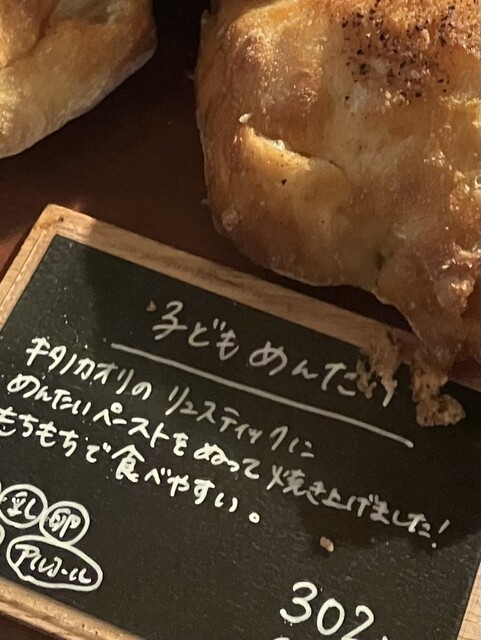 子どもめんたい
キタノカオリのリュスティックに
めんたいペーストをぬって焼き上げました!
もちもちで食べやすい。
乳 卵
アルコール
302